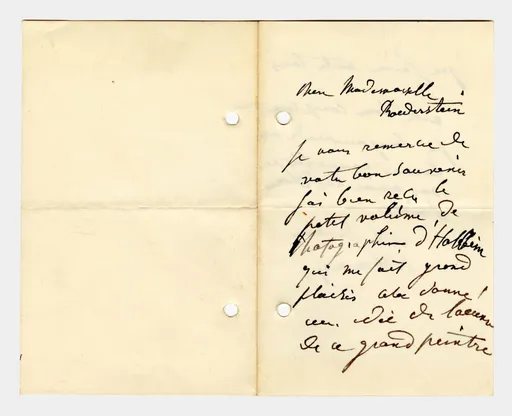 Chère Mademoiselle
Roederstein
je vous remercie de
votre bon souvenir
j'ai bien reçu le
petit volume de
Photographies d'Holbein
qui me fait grand
plaisir donne
une idée de l'oeuvre
de ce grand peintre